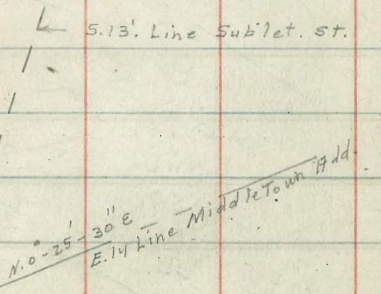 S.13'. Line Sublet. st.
N.0°-25'-30" E
E.14 Line MiddleTown Add.